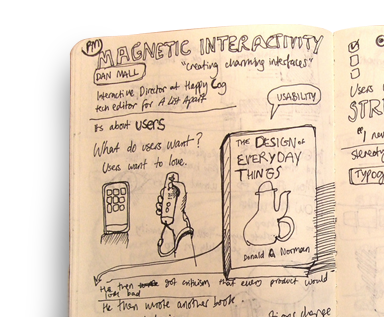 PM
MAGNETIC INTERACTIVITY
DAN MALL
"creating charming interfaces"
Interactive Director at Happy Cog
tech editor for A List Apart
USABILITY
its about users
What do users want?
Users want to love.
THE DESIGN OF
EVERYDAY
THINGS
Donald A Norman
He then got criticism that every product would
look bad
He then wrote another book
change
Users
STR
"I
stereoty
Typog